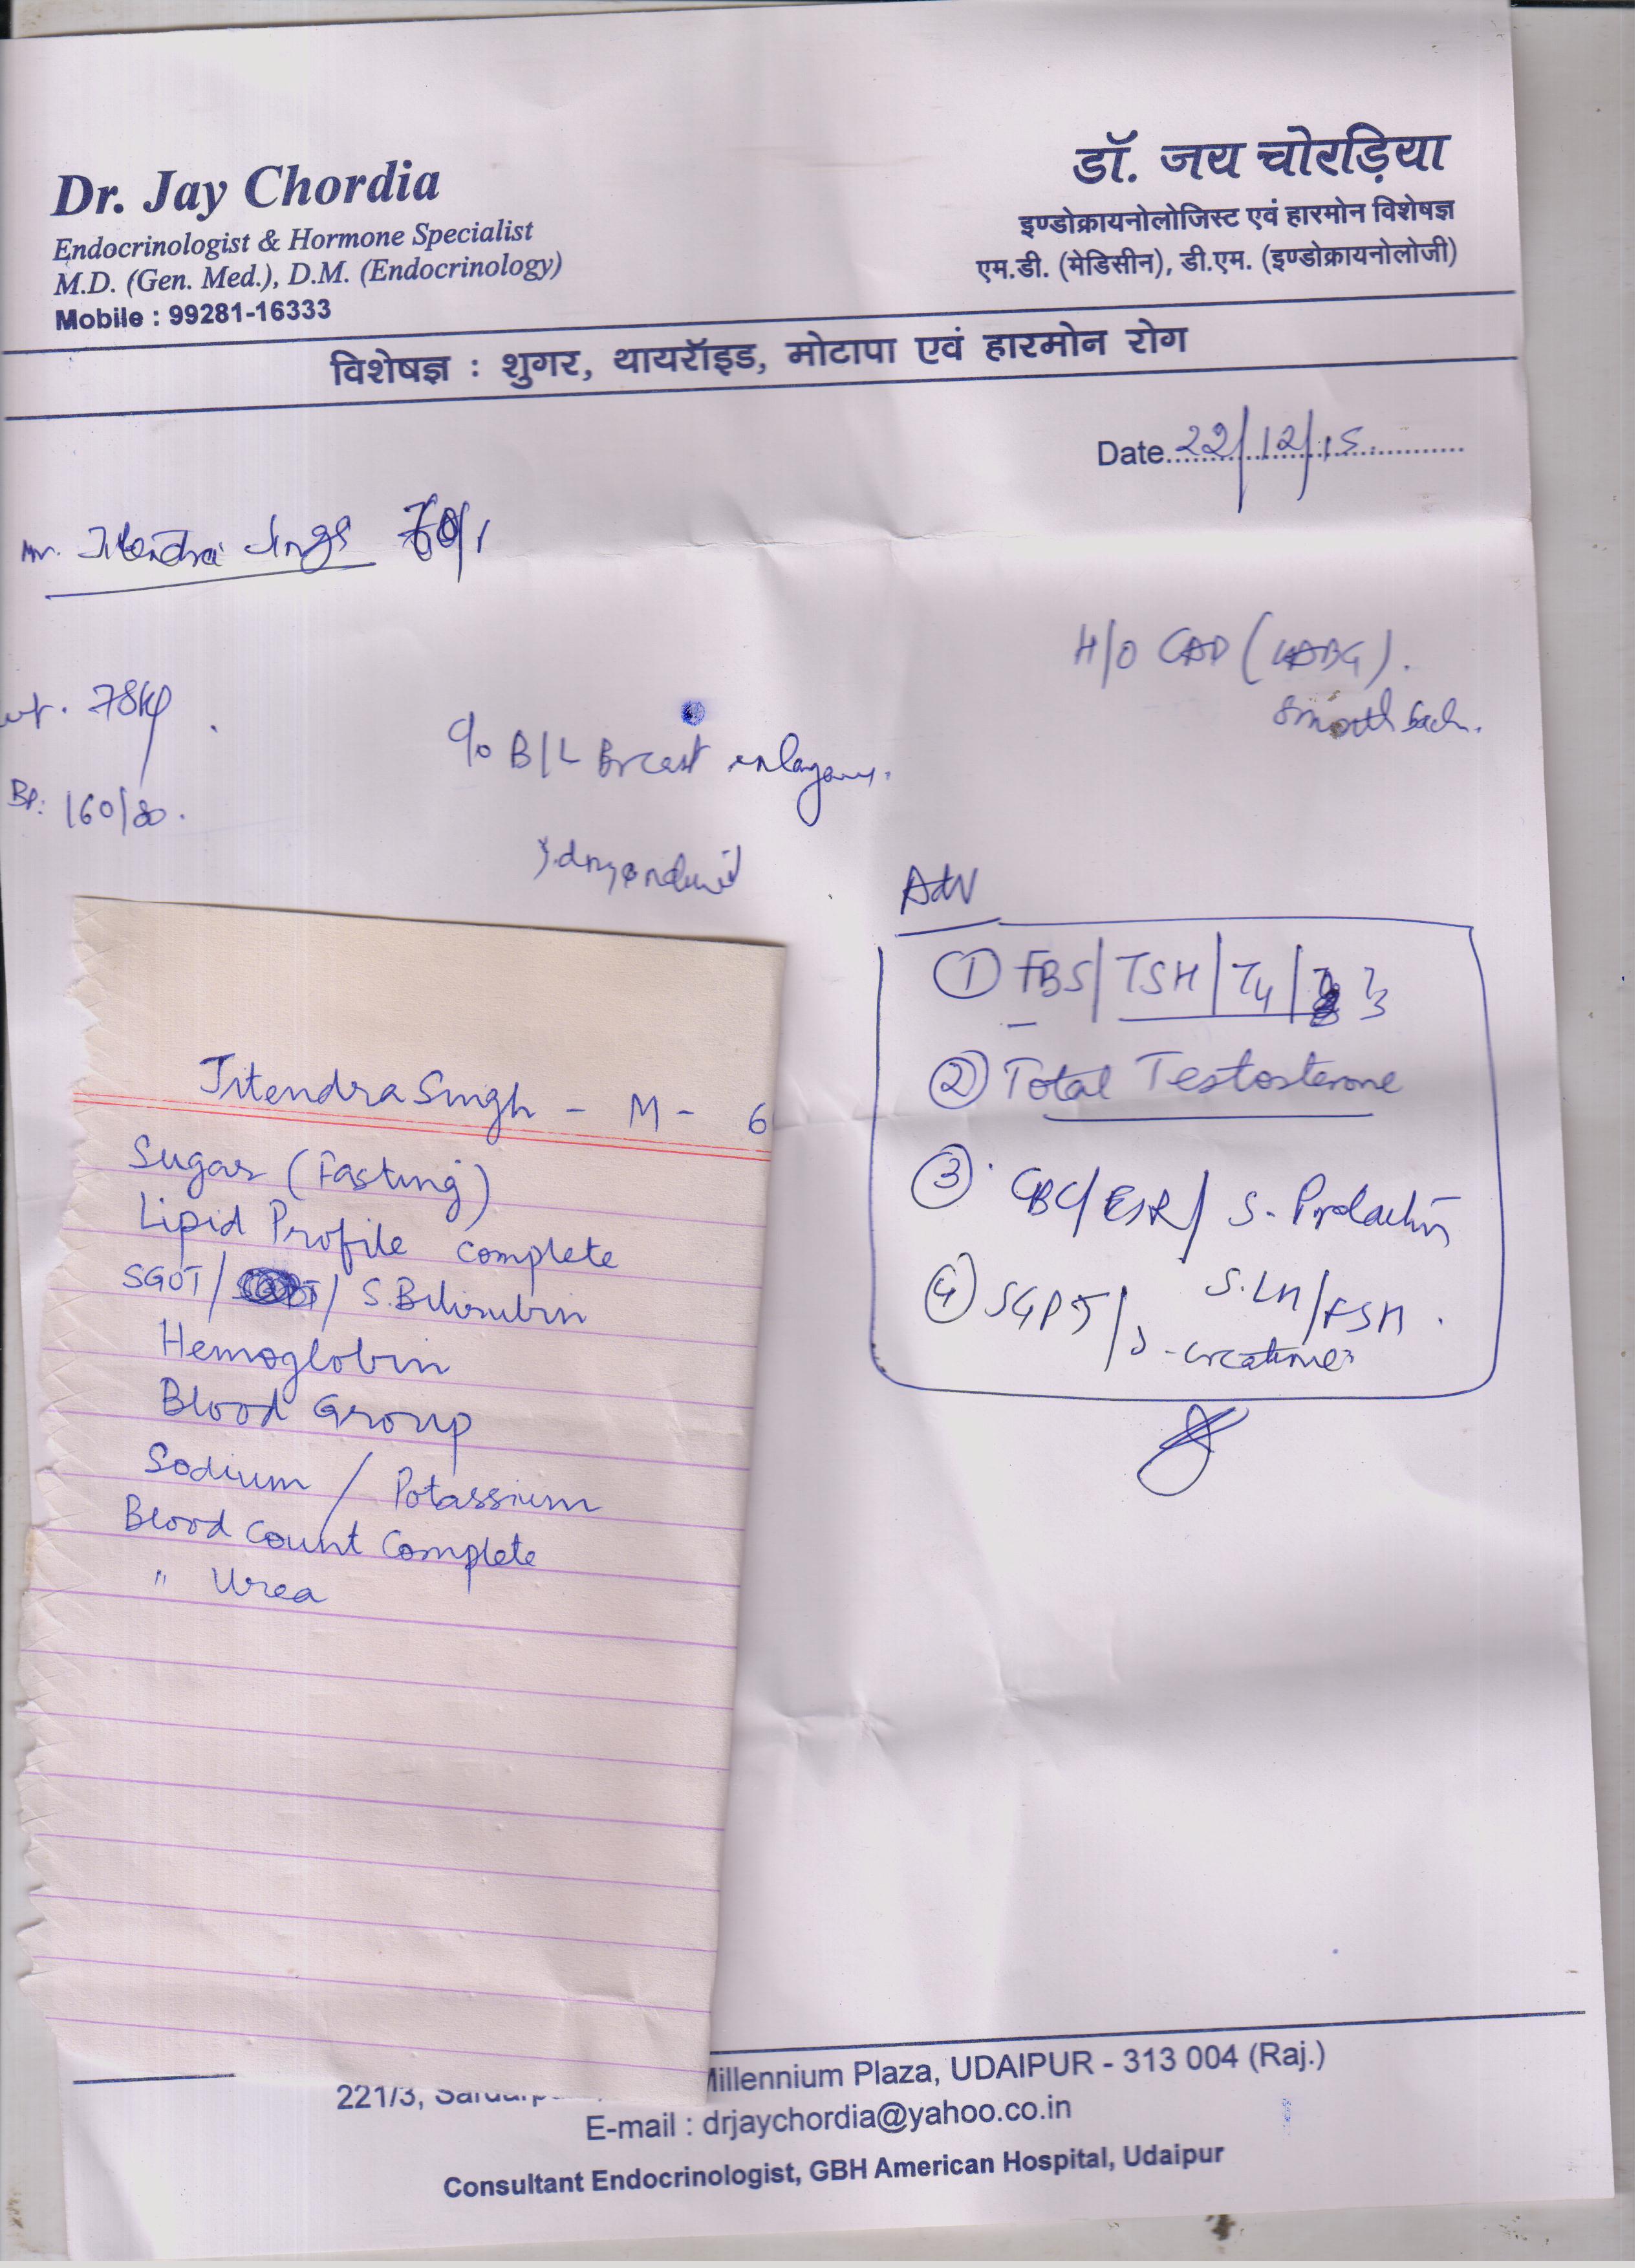 Dr. Jay Chordia
Endocrinologist & Hormone Specialist
M.D. (Gen. Med.), D.M. (Endocrinology)
Mobile : 99281-16333
डॉ. जय चोरड़िया
इण्डोक्रायनोलोजिस्ट एवं हारमोन विशेषज्ञ
एम.डी. (मेडिसीन), डी.एम. (इण्डोक्रायनोलोजी)
विशेषज्ञ : शुगर, थायरॉइड, मोटापा एवं हारमोन रोग
Date 22/12/15
Mr. Jitendra Singh
H/O CAD (CABG).
wt. 78kg
c/o B/L Breast
BP: 160/80.
Adv
① FBS/TSH/T4/ T3
② Total Testosterone
③ CBC/ESR/ S-Prolactin
④ SGPT/ S.LH/FSH.
S-creatinine
Jitendra Singh - M - 6
Sugar (Fasting)
Lipid Profile complete
SGOT/ / S.Bilirubin
Hemoglobin
Blood Group
Sodium / Potassium
Blood Count Complete
" Urea
221/3, Millennium Plaza, UDAIPUR - 313 004 (Raj.)
E-mail : drjaychordia@yahoo.co.in
Consultant Endocrinologist, GBH American Hospital, Udaipur